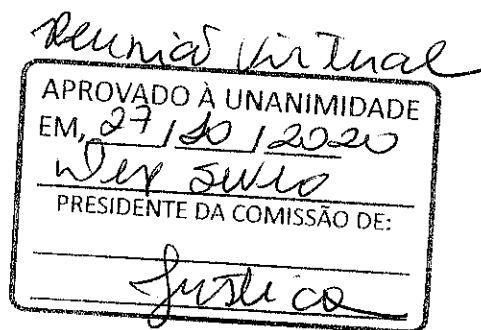 Reunião Virtual
APROVADO À UNANIMIDADE
EM, 27/10/2020
PRESIDENTE DA COMISSÃO DE:
Justiça